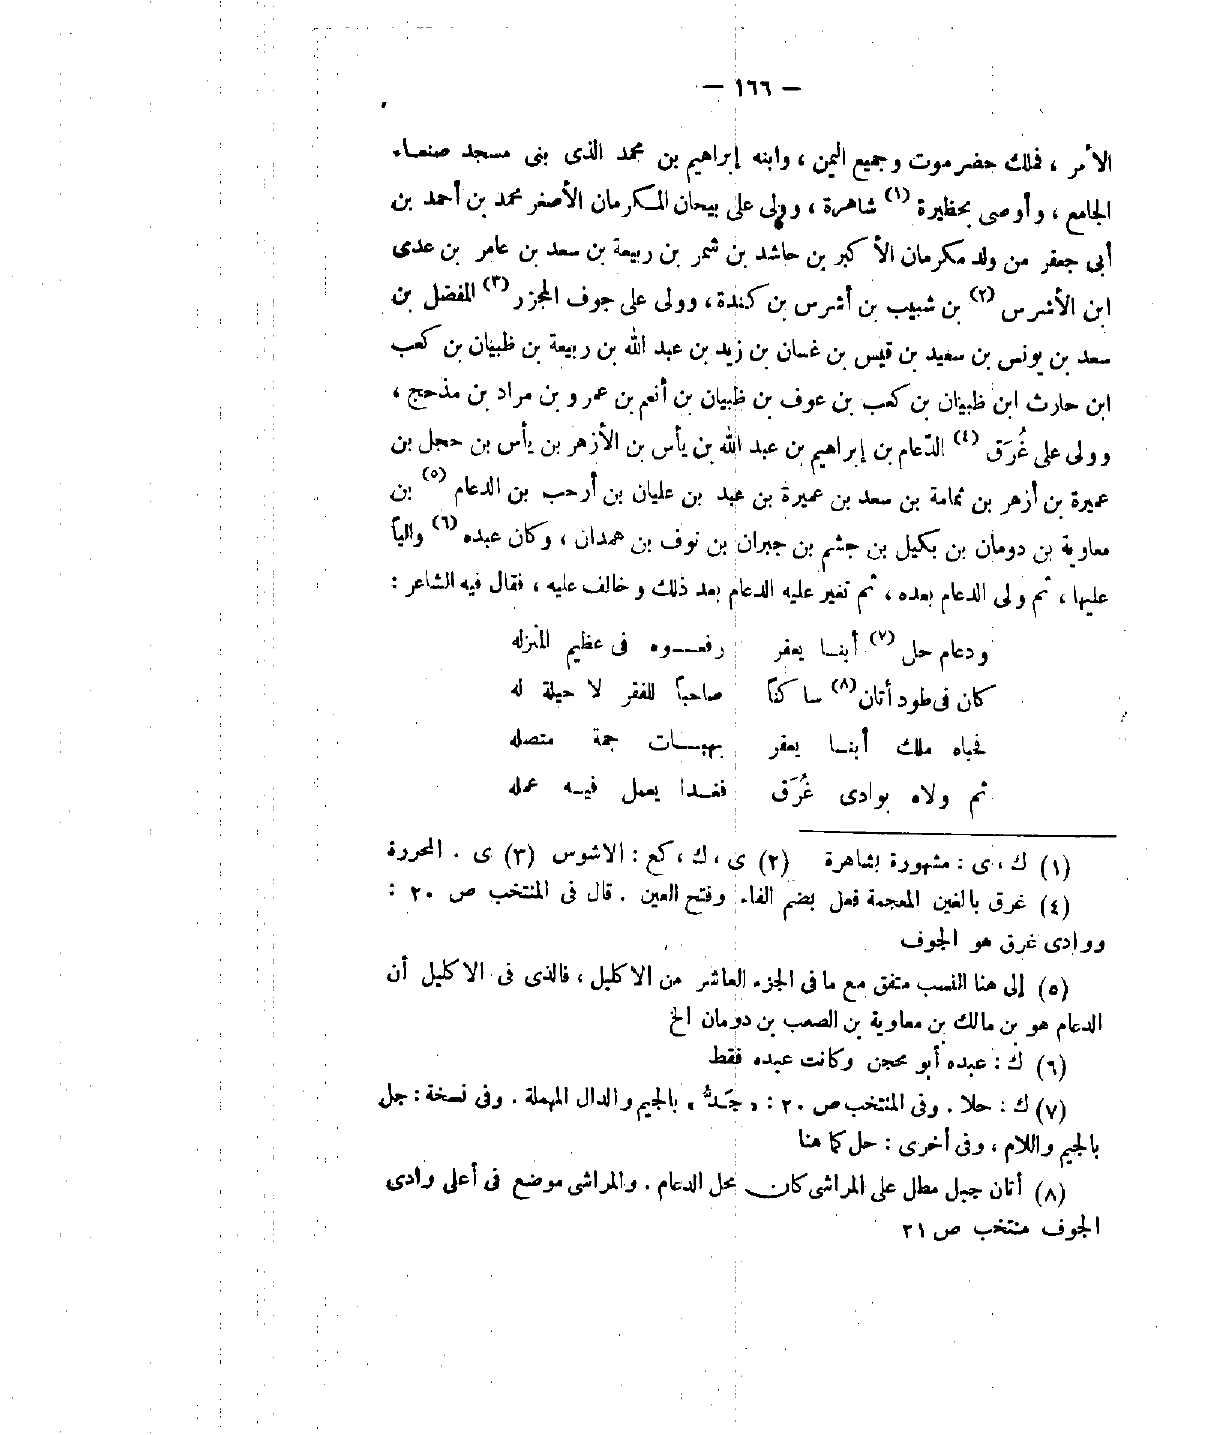 — ١٦٦ —
الأمر ، فملك حضرموت وجميع اليمن ، وابنه إبراهيم بن محمد الذى بنى مسجد صنعاء
الجامع ، وأوصى بحظيرة (١) شاهرة ، وولى على بيحان المكرمان الأصغر محمد بن أحمد بن
أبى جعفر من ولد مكرمان الأكبر بن حاشد بن شمر بن ربيعة بن سعد بن عامر بن عدى
ابن الأشرس (٢) بن شبيب بن أشرس بن كندة ، وولى على جوف المجزر (٣) المفضل بن
سعد بن يونس بن سعيد بن قيس بن غسان بن زيد بن عبد الله بن ربيعة بن ظبيان بن كعب
ابن حارث ابن ظبيان بن كعب بن عوف بن ظبيان بن أنعم بن عمرو بن مراد بن مذحج ،
وولى على غُرَق (٤) الدّعام بن إبراهيم بن عبد الله بن يأس بن الأزهر بن يأس بن حجل بن
عميرة بن أزهر بن ثمامة بن سعد بن عميرة بن عبد بن عليان بن أرحب بن الدعام (٥) بن
معاوية بن دومان بن بكيل بن جشم بن جبران بن نوف بن همدان ، وكان عبده (٦) والياً
عليها ، ثم ولى الدعام بعده ، ثم تغير عليه الدعام بعد ذلك وخالف عليه ، فقال فيه الشاعر :
ودعام حل (٧) أبنا يعفر رفعوه فى عظيم المنزله
كان فى طود أتان (٨) ساكناً صاحباً للفقر لا حيلة له
فحباه ملك أبنا يعفر بهبات جمة متصله
ثم ولاه بوادى غُرَق فغدا يعمل فيه عمله
(١) ك ، ى : مشهورة بشاهرة (٢) ى ، ك ، كع : الاشوس (٣) ى . المحررة
(٤) غرق بالغين المعجمة فعل بضم الفاء وفتح العين . قال فى المنتخب ص ٢٠ :
ووادى غرق هو الجوف
(٥) إلى هنا النسب متفق مع ما فى الجزء العاشر من الاكليل ، فالذى فى الاكليل أن
الدعام هو بن مالك بن معاوية بن الصعب بن دومان الخ
(٦) ك : عبده أبو محجن وكانت عبده فقط
(٧) ك : حلا . وفى المنتخب ص ٢٠ : « جَدُّ » بالجيم والدال المهملة . وفى نسخة : جل
بالجيم واللام ، وفى أخرى : حل كما هنا
(٨) أتان جبل مطل على المراشى كان محل الدعام . والمراشى موضع فى أعلى وادى
الجوف منتخب ص ٢١